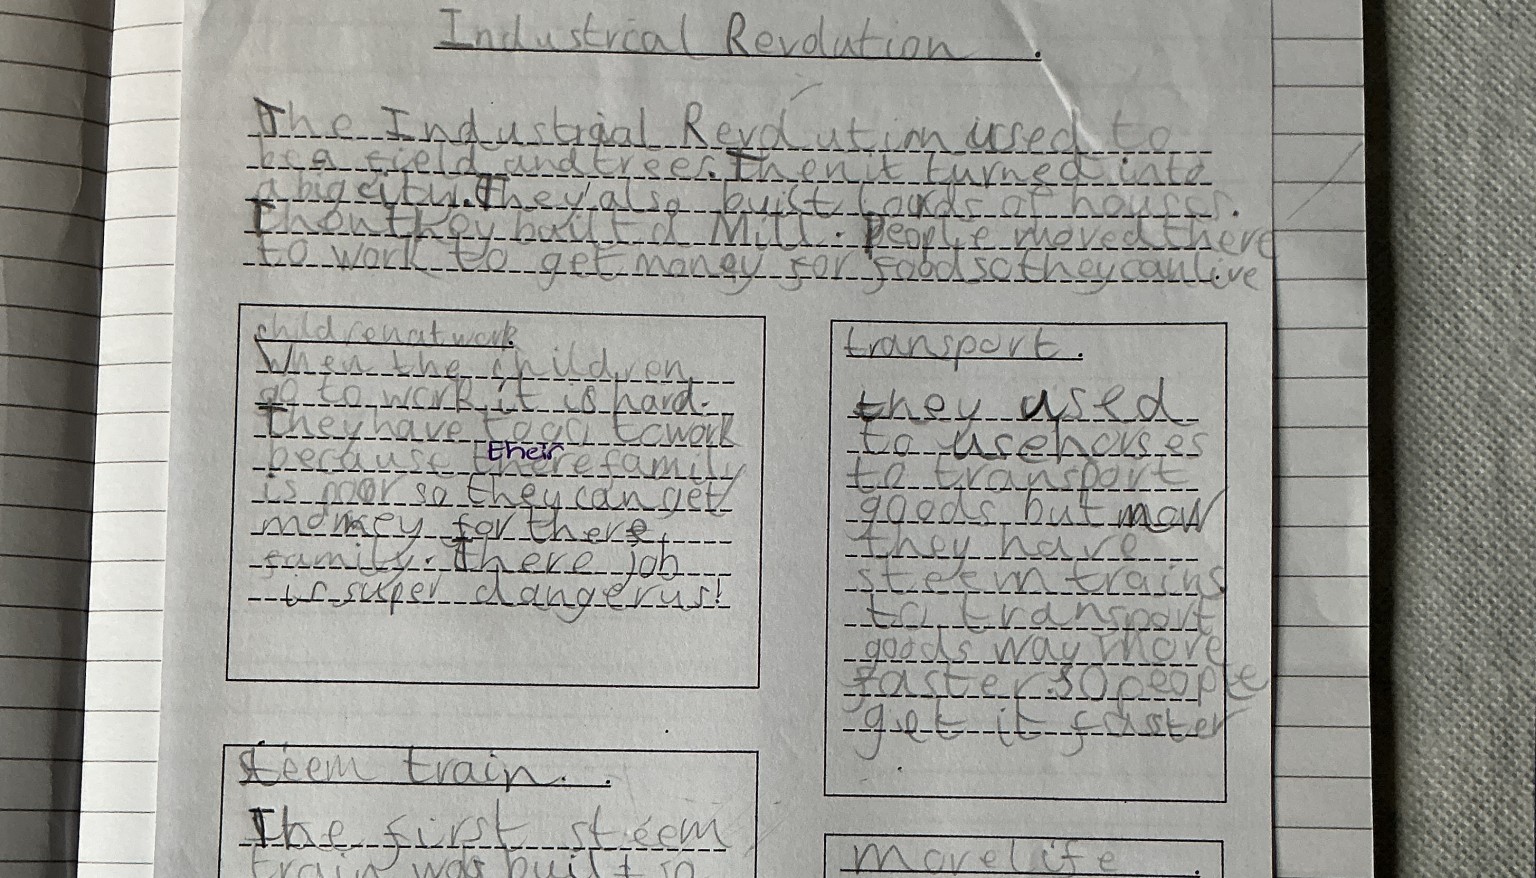 Industrial Revolution.
The Industrial Revolution used to
be a field and trees. Then it turned into
a big city. They also built loads of houses.
Then they built a Mill. People moved there
to work to get money for food so they can live
children at work.
When the children
go to work it is hard.
They have to go to work
their
because there family
is poor so they can get
money for there
family. there job
is super dangerus!
transport.
they used
to use horses
to transport
goods but now
they have
steem trains
to transport
goods way more
faster so people
get it faster
.
steem train.
The first steem
train was built in